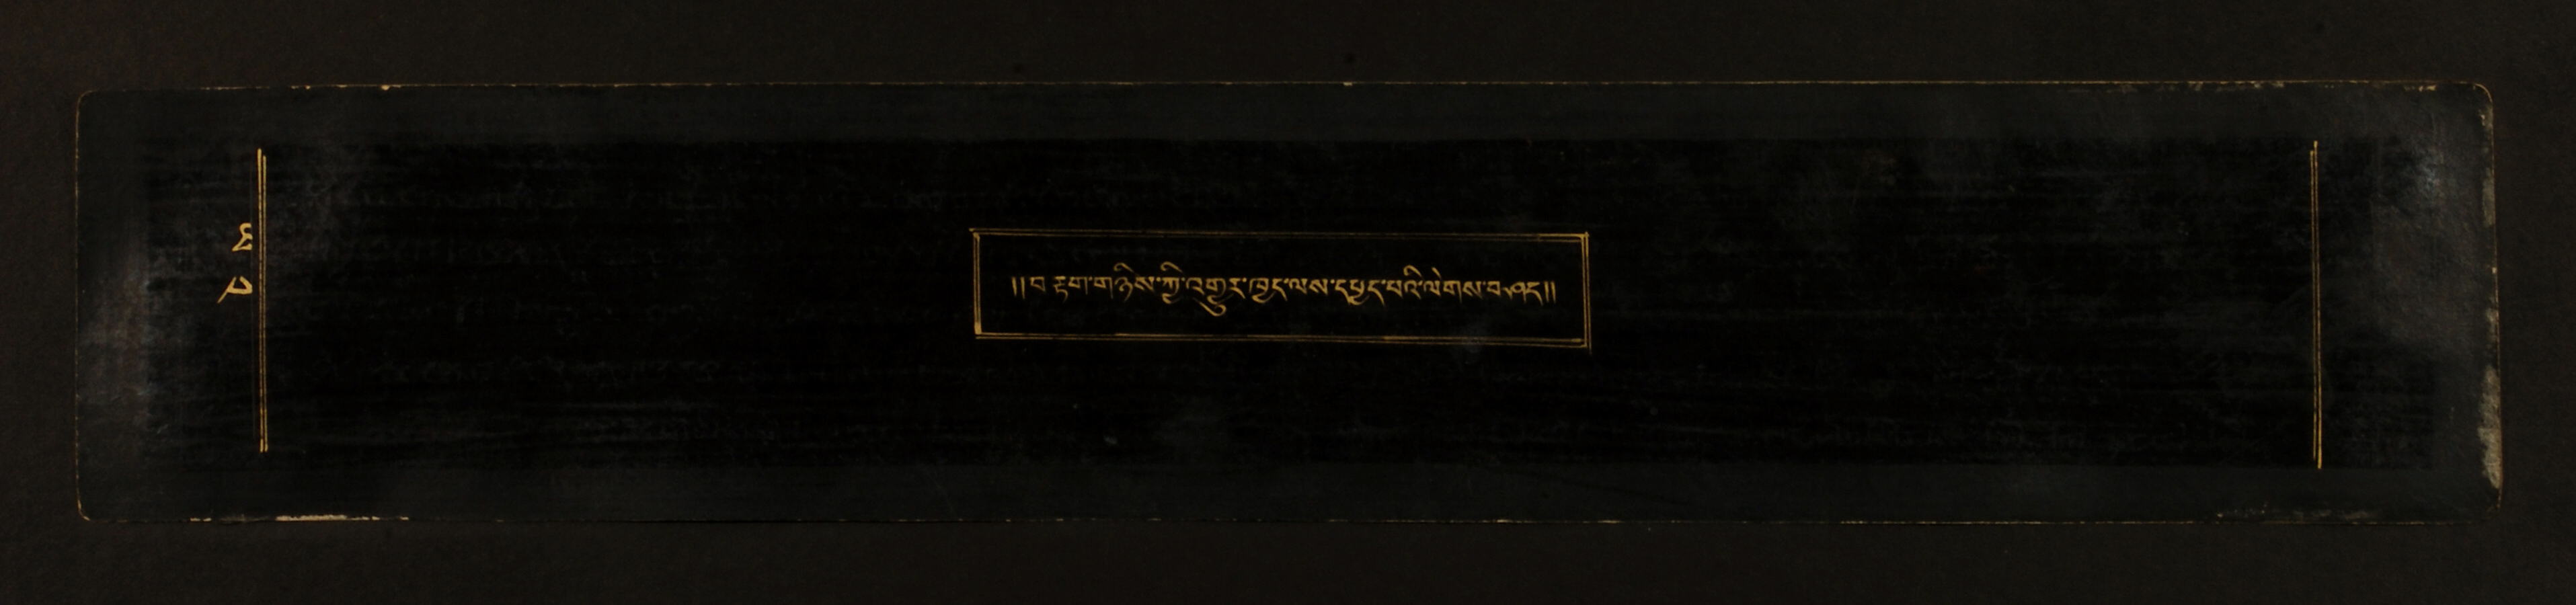 །།བརྟག་གཉིས་ཀྱི་འགྱུར་ཁྱད་ལས་དཔྱད་པའི་ལེགས་བཤད།།